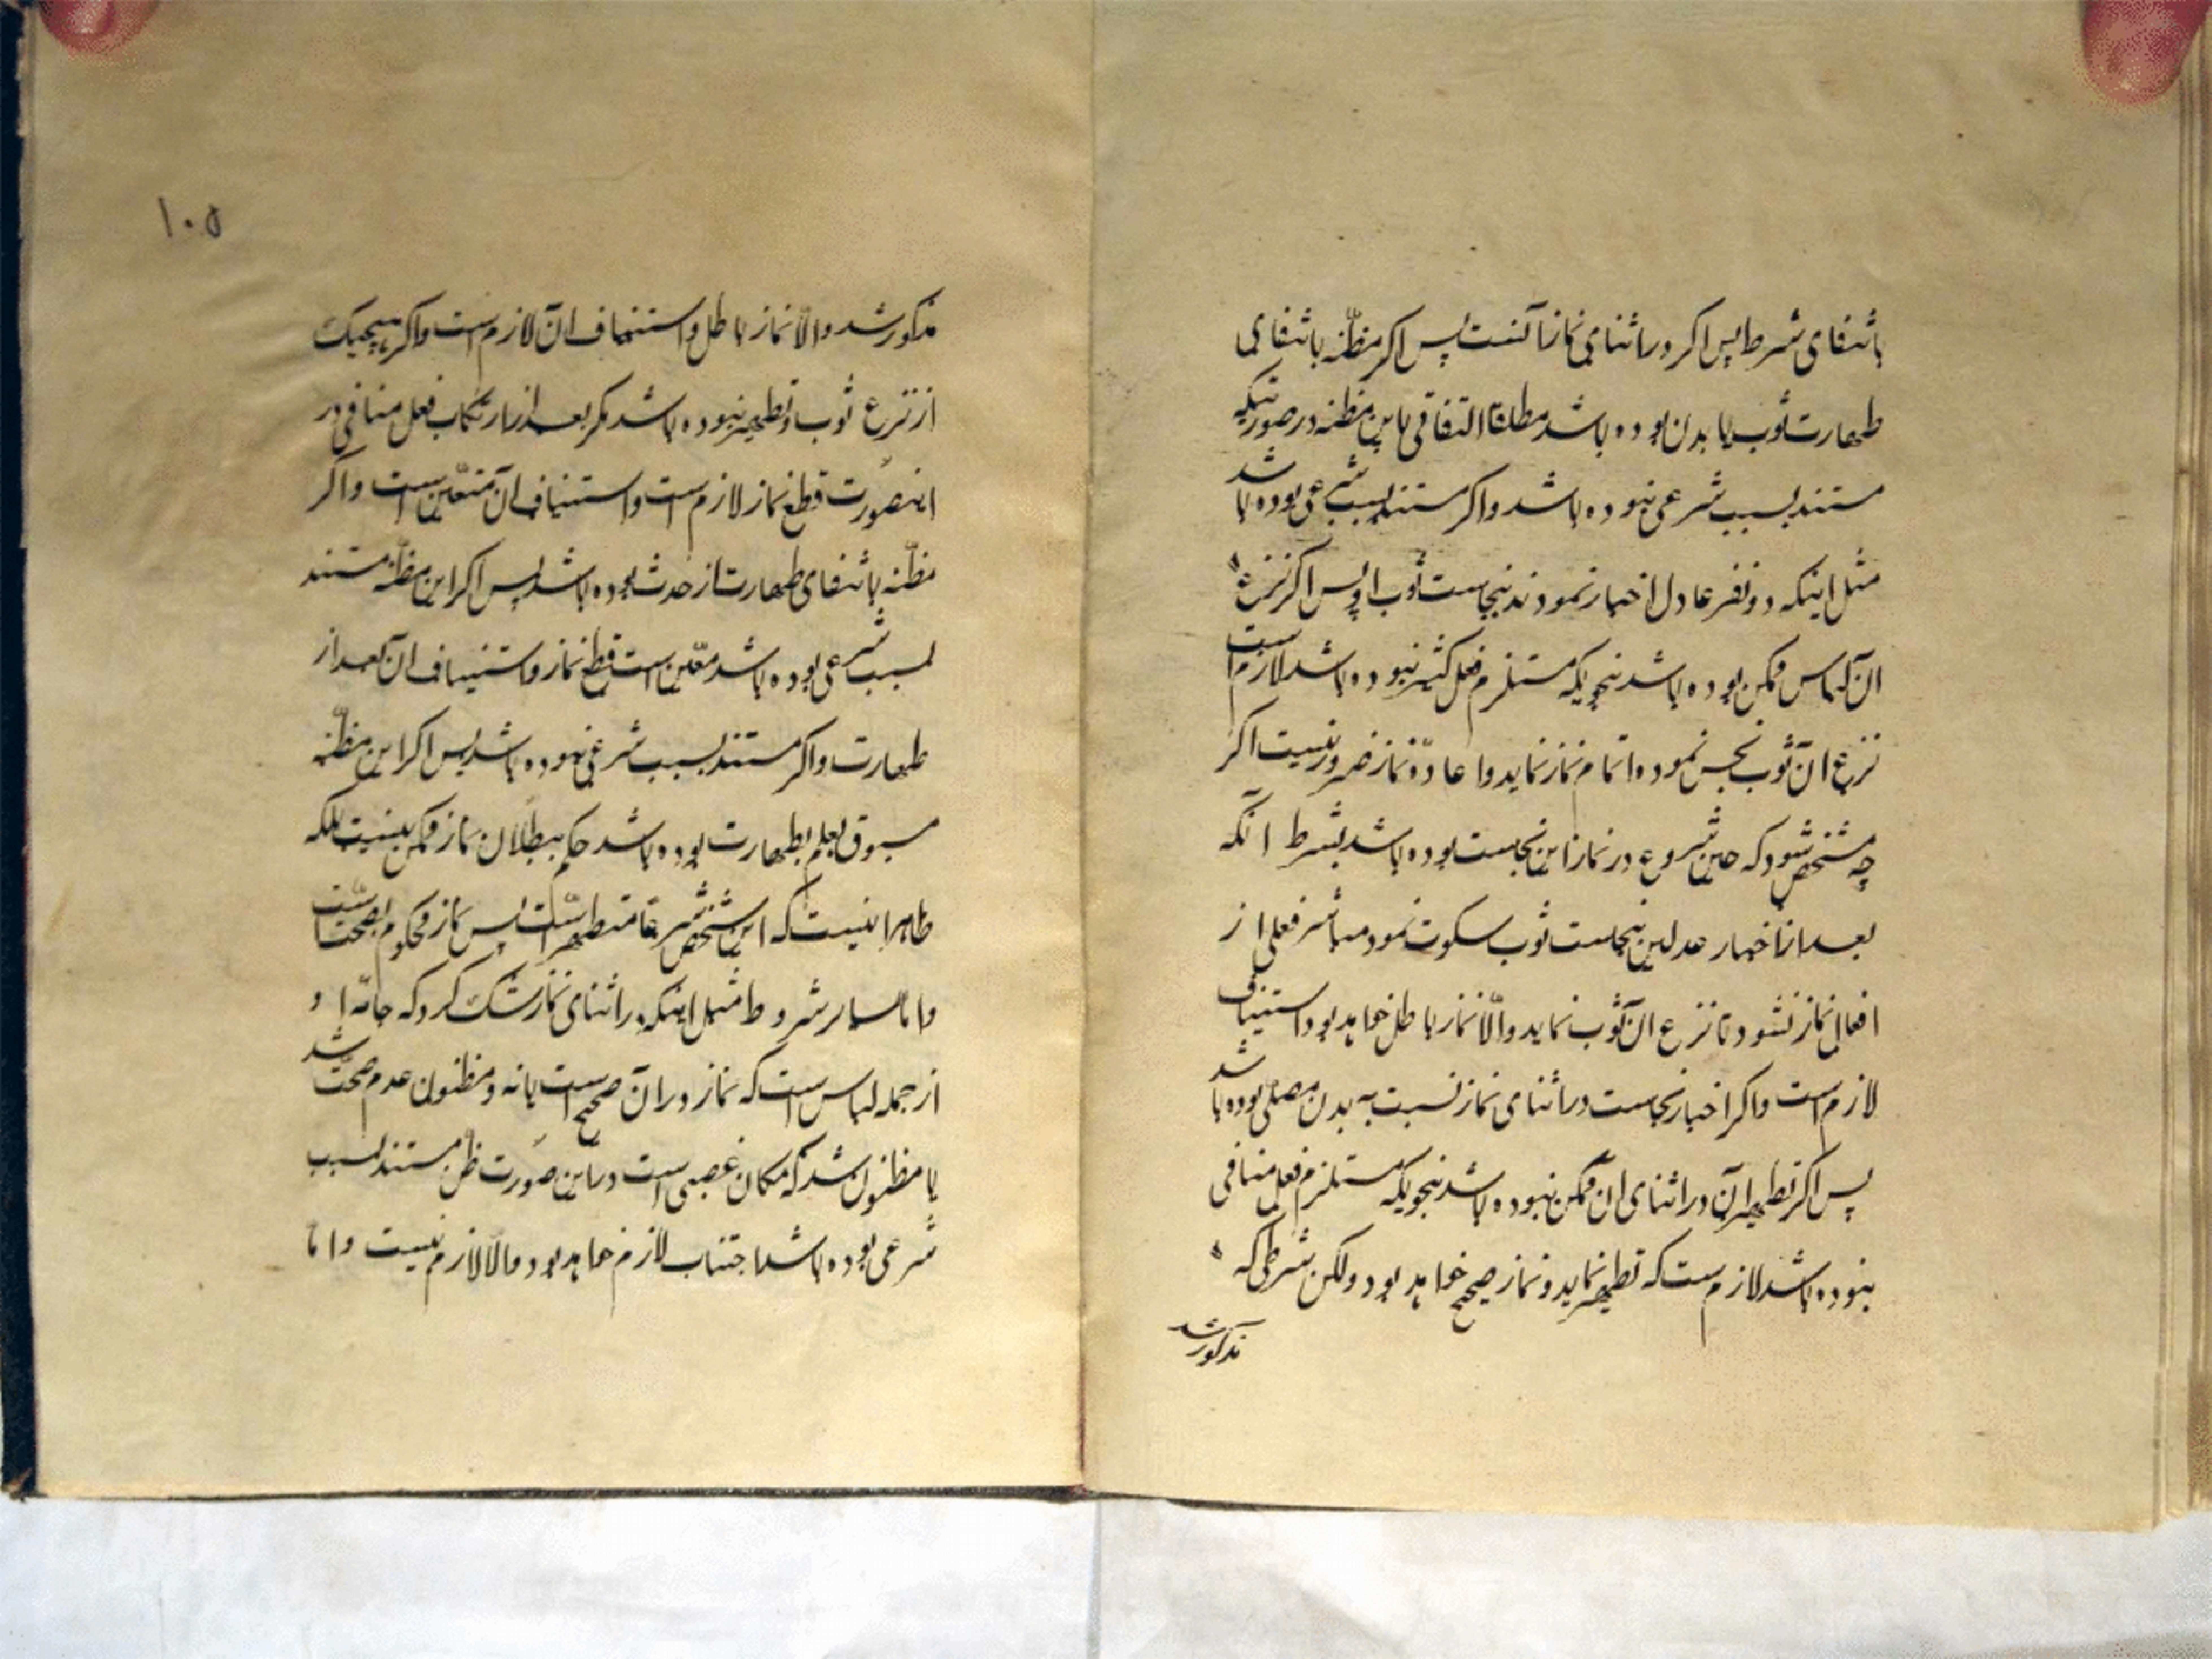 بانتفای شرط پس اکر در اثنای نماز آنست پس اکر مظنّه بانتفای
طهارت ثوب یا بدن بوده باشد مطلقا التفاتی باین مظنه در صورتیکه
مستند بسبب شرعی نبوده باشد و اکر مستند بسبب شرعی بوده باشد
مثل اینکه دو نفر عادل اخبار نمودند بنجاست ثوب او پس اکر نزع
ان لباس ممکن بوده باشد بنحویکه مستلزم فعل کثیر نبوده باشد لازم است
نزع ان ثوب نجس نموده اتمام نماز نماید و اعادهٔ نماز ضرور نیست اکر
چه مشخص شود که حین شروع در نماز این نجاست بوده باشد بشرط انکه
بعد از اخبار عدلین بنجاست ثوب سکوت نمود مباشر فعلی از
افعال نماز نشود تا نزع ان ثوب نماید و الّا نماز باطل خواهد بود استیناف
لازم است و اکر اخبار نجاست در اثنای نماز نسبت به بدن مصلی بوده باشد
پس اکر تطهیر آن در اثنای ان ممکن نبوده باشد بنحویکه مستلزم فعل منافی
نبوده باشد لازم است که تطهیر نماید و نماز صحیح خواهد بود ولکن شرطی که
مذکور شد
۱۰۵
مذکور شد و الّا نماز باطل و استیناف ان لازم است و اکر هیچیک
از نزع ثوب و تطهیر نبوده باشد مکر بعد از ارتکاب فعل منافی در
اینصورت قطع نماز لازم است و استیناف ان متعین است و اکر
مظنّه بانتفای طهارت از حدث بوده باشد پس اکر این مظنّه مستند
بسبب شرعی بوده باشد معیّن است قطع نماز و استیناف ان بعد از
طهارت و اکر مستند بسبب شرعی نبوده باشد پس اکر این مظنّه
مسبوق بعلم بطهارت بوده باشد حکم ببطلان نماز ممکن نیست بلکه
ظاهر اینست که این شخص شرعا متطهر است پس نماز محکوم بصحّت است
و امّا سایر شروط مثل اینکه در اثنای نماز شک کرد که جامهٔ او
از جمله لباس است که نماز در ان صحیح است یا نه و مظنون عدم صحّت شد
یا مظنون شد که مکان غصبی است در این صورت ظنّ مستند بسبب
شرعی بوده باشد اجتناب لازم خواهد بود و الّا لازم نیست و امّا